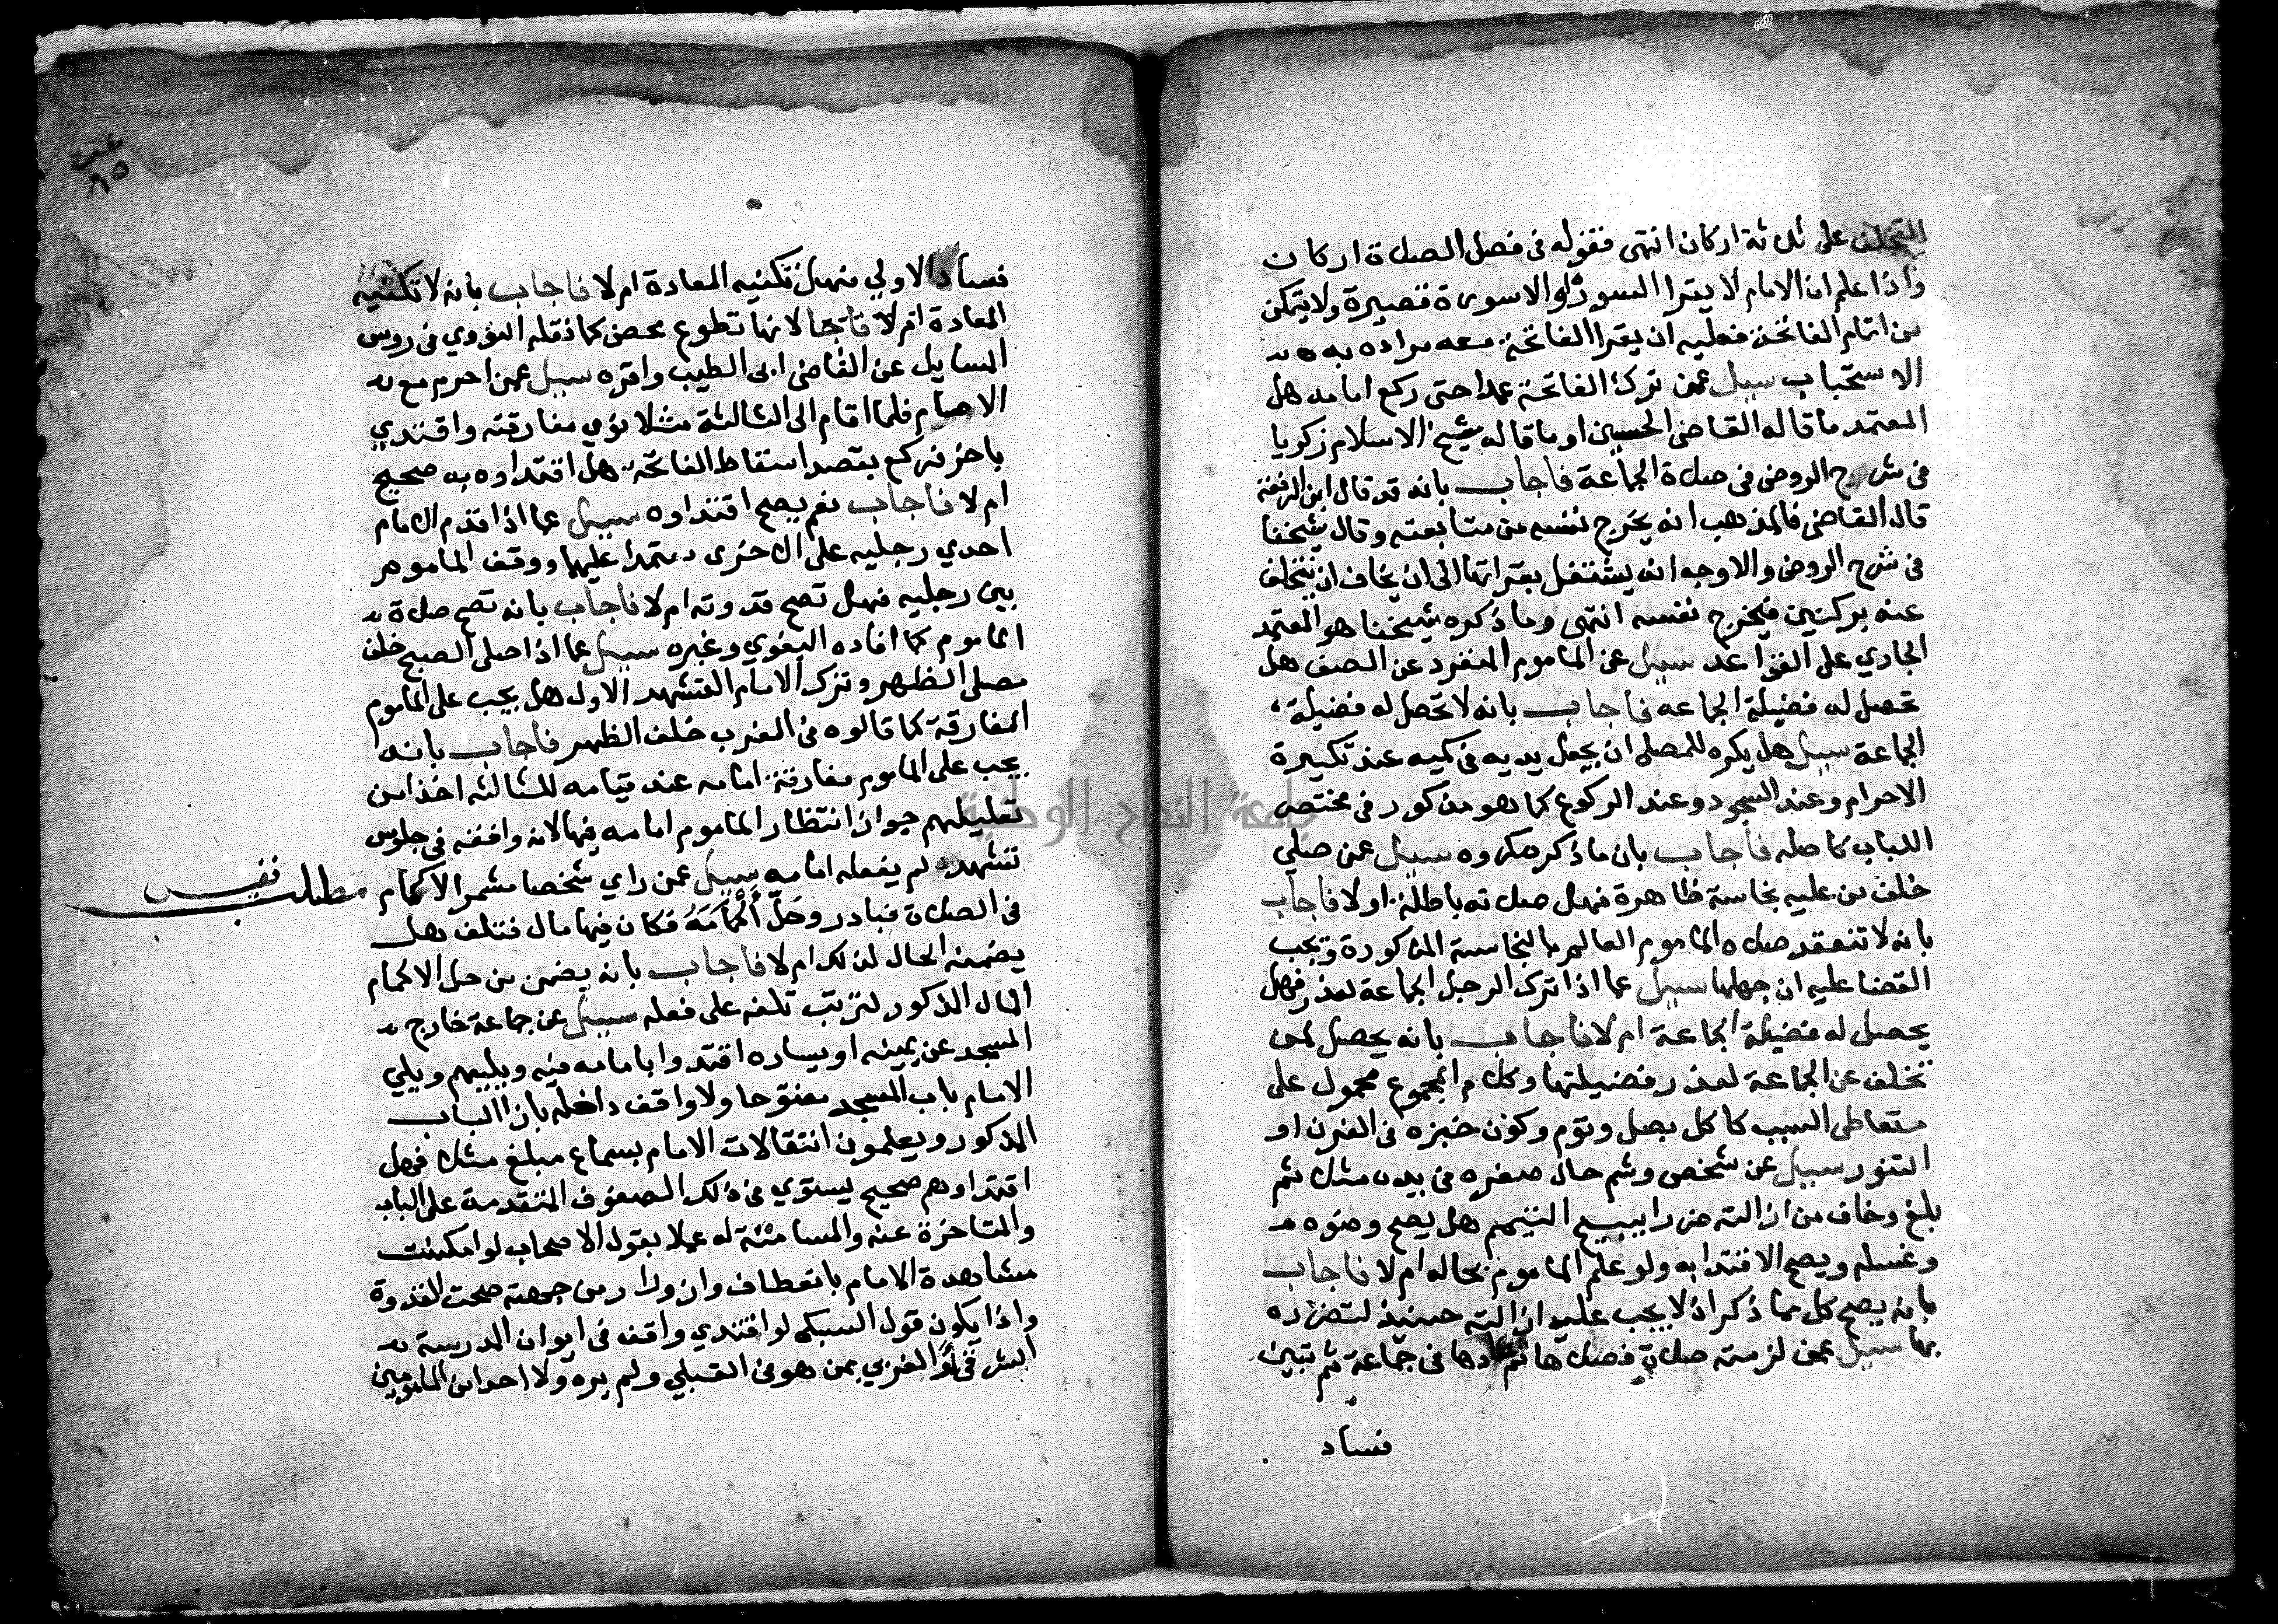 التخلف على ثلاثة اركان انتهى فقوله في فصل الصلاة اركان
واذا علم ان الامام لا يقرا السورة او الا سورة قصيرة ولا يتمكن
من اتمام الفاتحة فعليه ان يقرا الفاتحة معه مراده به
الاستحباب سيل عمن ترك الفاتحة عمدا حتى ركع امامه هل
المعتمد ما قاله القاضي الحسين او ما قاله شيخ الاسلام زكريا
في شرح الروض في صلاة الجماعة فاجاب بانه قد قال ابن الرفعة
قال القاضي فالمذهب انه يخرج نفسه من متابعته وقال شيخنا
في شرح الروض والاوجه انه يشتغل بقراتها الى ان يخاف ان يتخلف
عنه بركنين فيخرج نفسه انتهى وما ذكره شيخنا هو المعتمد
الجاري على القواعد سيل عن الماموم المنفرد عن الصف هل
تحصل له فضيلة الجماعه فاجاب بانه لا تحصل له فضيلة
الجماعة سيل هل يكره للمصلي ان يجعل يديه في كميه عند تكبيرة
الاحرام وعند السجود وعند الركوع كما هو مذكور في مختصر
اللباب كاصله فاجاب بان ما ذكر مكروه سيل عمن صلي
خلف من عليه نجاسة ظاهرة فهل صلاته باطلة او لا فاجاب
بانه لا تنعقد صلاه الماموم العالم بالنجاسة المذكورة ويجب
القضا عليه ان جهلها سيل عما اذا ترك الرجل الجماعة لعذر فهل
يحصل له فضيلة الجماعة ام لا فاجاب بانه يحصل لمن
تخلف عن الجماعة لعذر فضيلتها وكلام المجموع محمول على
متعاطي السبب كاكل بصل وثوم وكون خبزه في الفرن او
التنور سيل عن شخص وشم حال صغره في بدن مثلا ثم
بلغ وخاف من ازالته ضررا يبيح التيمم هل يصح وضوه
وغسله ويصح الاقتدا به ولو علم الماموم بحاله ام لا فاجاب
بانه يصح كل مما ذكر اذ لا يجب عليه ازالته حينيذ لتضرره
بها سيل عمن لزمته صلاة فصلاها ثم اعادها في جماعة ثم تبين
فساد
فساد الاولي فهل تكفيه المعادة ام لا فاجاب بانه لا تكفيه
المعادة لانها تطوع محض كما نقله النووي في روس
المسايل عن القاضي ابي الطيب واقره سيل عمن احرم مع
الامام فلما قام الى الثالثة مثلا نوي مفارقته واقتدي
باخر فركع بقصد اسقاط الفاتحة هل اقتداوه به صحيح
ام لا فاجاب نعم يصح اقتداوه سيل عما اذا قدم الامام
احدي رجليه على الاخرى معتمدا عليها ووقف الماموم
بين رجليه فهل تصح قدوته ام لا فاجاب بانه تصح صلاة
الماموم كما افاده البغوي وغيره سيل عما اذا صلى الصبح خلف
مصلى الظهر وترك الامام التشهد الاول هل يجب على الماموم
المفارقة كما قالوه في المغرب خلف الظهر فاجاب بانه
يجب على الماموم مفارقة امامه عند قيامه للثالثه اخذا من
تعليلهم جواز انتظار الماموم امامه فيها لانه وافقه في جلوس
تشهد لم يفعله امامه سيل عمن راي شخصا مشمر الاكمام
مطلب نفيس
في الصلاة فبادر وحَلَّ أَكْمَامَهُ فكان فيها مال فتلف هل
يضمنه الحال لذلك ام لا فاجاب بانه يضمن من حل الاكمام
المال المذكور لترتب تلفه على فعله سيل عن جماعة خارج
المسجد عن يمينه او يساره اقتدوا بامامه فيه ويليهم ويلي
الامام باب المسجد مفتوحا ولا واقف داخله بازا الباب
المذكور ويعلمون انتقالات الامام بسماع مبلغ مثلا فهل
اقتداوهم صحيح ليستوي في ذلك الصفوف المتقدمة على الباب
والمتاخرة عنه والمسامتة له عملا بقول الاصحاب لو امكنت
مشاهدة الامام بانعطاف وازورار من جهته صحت القدوة
واذا يكون قول السبكي لو اقتدي واقف في ايوان المدرسة
الشرقي او الغربي بمن هو في القبلي ولم يره ولا احدا من المامومين